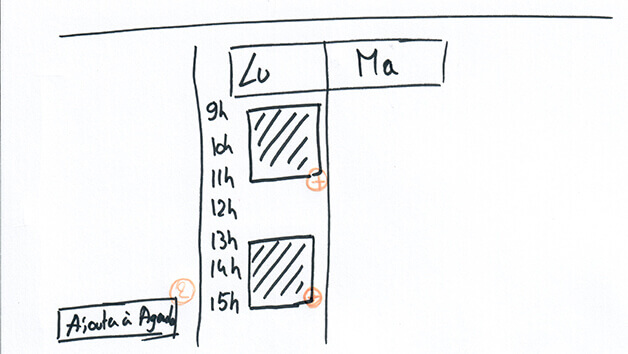 Lu Ma
9h
10h
11h
12h
13h
14h
15h
Ajouter à Agenda